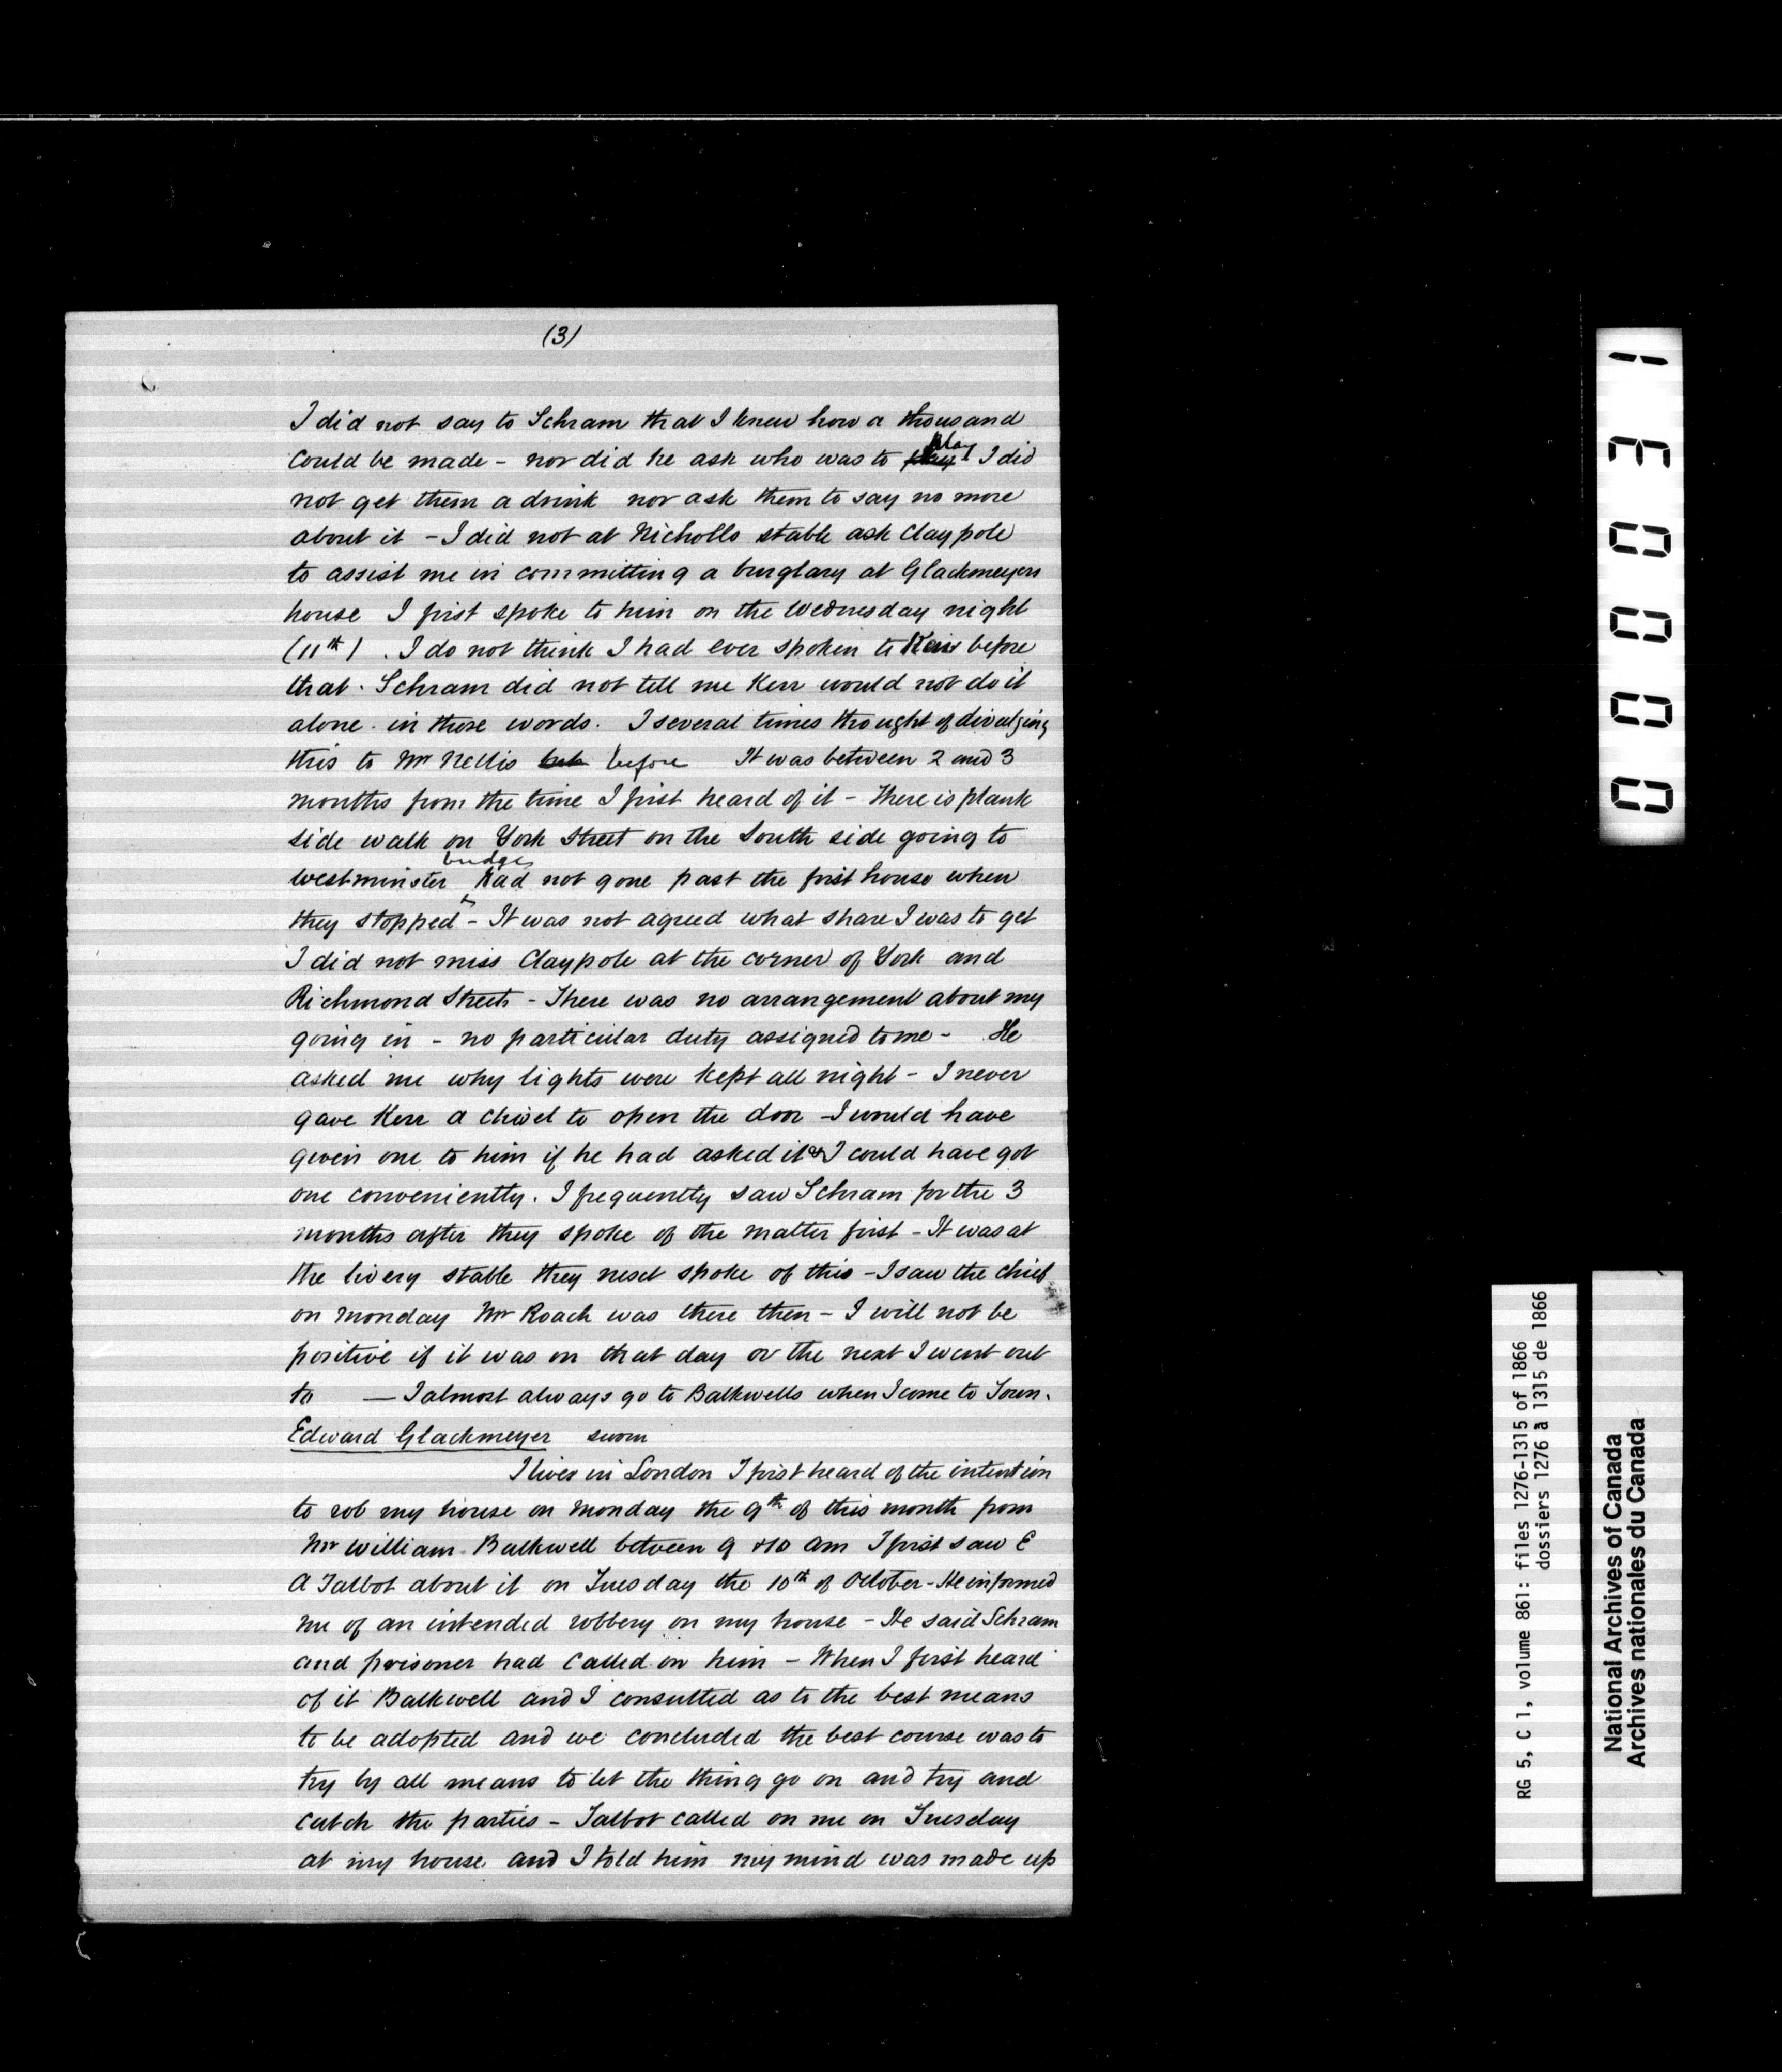 (3)
I did not say to Schram that I knew how a thousand
could be made - nor did he ask who was to play I did
not get them a drink nor ask them to say no more
about it - I did not at Nicholls stable ask Claypole
to assist me in committing a burglary at Glackmeyers
house I first spoke to him on the Wednesday night
(11th) . I do not think I had ever spoken to Kerr before
that . Schram did not tell me Kerr would not do it
alone . in those words . I several times thought of divulging
this to Mr Nellis but before It was between 2 and 3
months from the time I first heard of it - There is plank
side walk on York Street on the South side going to
Westminster bridge Had not gone past the first house when
they stopped - It was not agreed what share I was to get
I did not miss Claypole at the corner of York and
Richmond Streets - There was no arrangement about my
going in - no particular duty assigned to me - He
asked me why lights were kept all night - I never
gave Kerr a chisel to open the door - I would have
given one to him if he had asked it & I could have got
one conveniently . I frequently saw Schram for the 3
months after they spoke of the matter first - It was at
the livery stable they next spoke of this - I saw the chief
on Monday Mr Roach was there then - I will not be
positive if it was on that day or the next I went out
to — I almost always go to Balkwells when I come to Town .
Edward Glackmeyer sworn
I live in London I first heard of the intention
to rob my house on Monday the 9th of this month from
Mr William Balkwell between 9 & 10 am I first saw E
A Talbot about it on Tuesday the 10th of October - He informed
me of an intended robbery on my house - He said Schram
and prisoner had called on him - When I first heard
of it Balkwell and I consulted as to the best means
to be adopted and we concluded the best course was to
try by all means to let the thing go on and try and
catch the parties - Talbot called on me on Tuesday
at my house and I told him my mind was made up
000031
RG 5, C 1, volume 861: files 1276-1315 of 1866
dossiers 1276 à 1315 de 1866
National Archives of Canada
Archives nationales du Canada